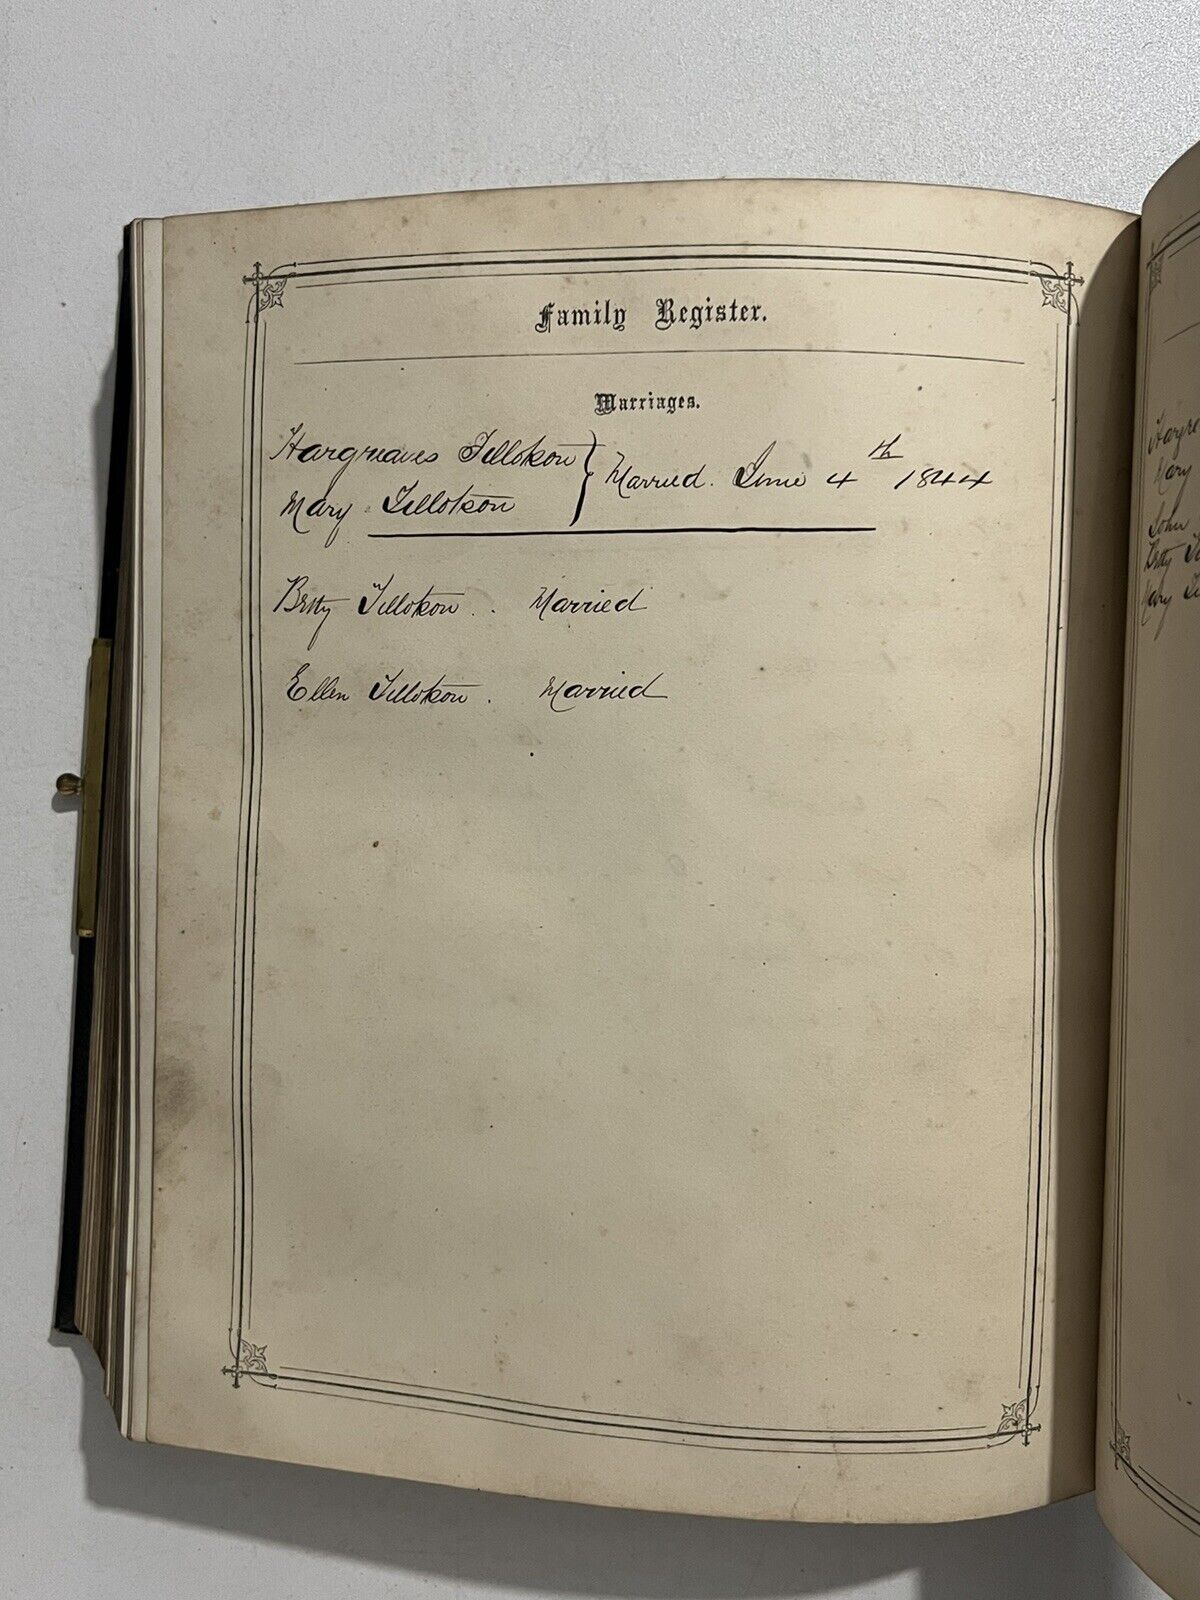 Family Register.
Marriages.
Hargreaves Tillotson
Mary Tillotson
Married. June 4th 1844
Betty Tillotson . . Married
Ellen Tillotson . Married
Mary
John
Betty
Mary